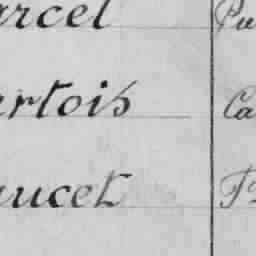 arcel Pu
ertois Ca
aucet F